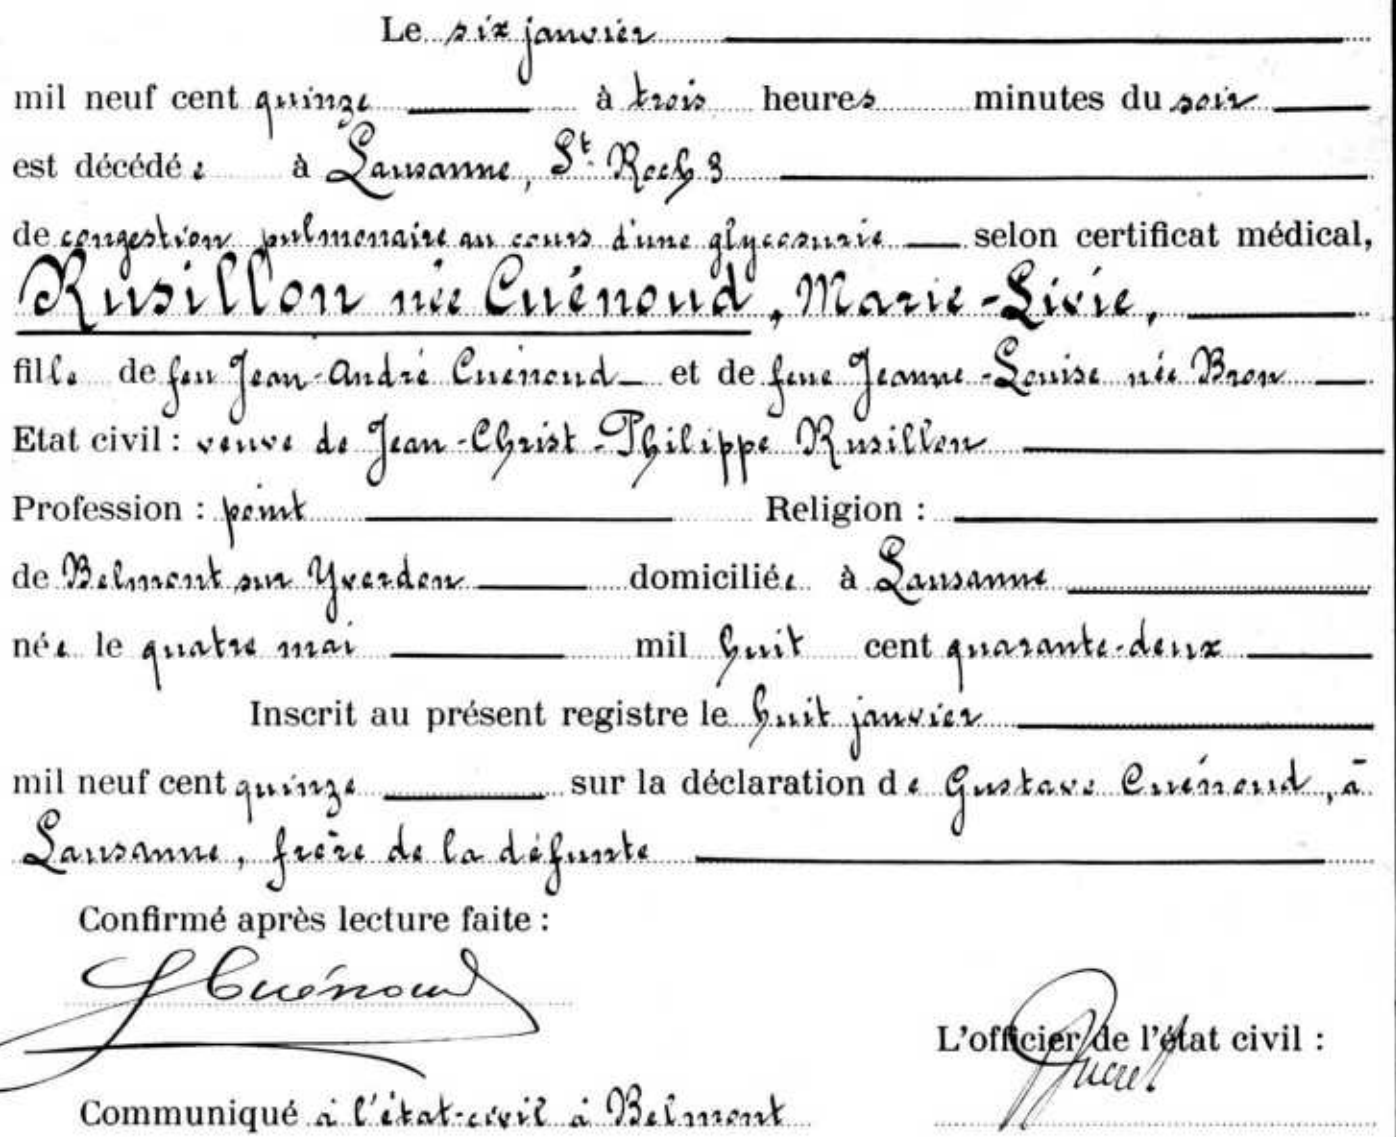 Le six janvier
mil neuf cent quinze à trois heures minutes du soir
est décédée à Lausanne, St. Roch 3
de congestion pulmonaire au cours d'une glycosurie selon certificat médical,
Rusillon née Cuénoud, Marie-Livie,
fille de feu Jean-André Cuénoud et de feue Jeanne-Louise née Bron
Etat civil : veuve de Jean-Christ-Philippe Rusillon
Profession : point Religion :
de Belmont sur Yverdon domiciliée à Lausanne
née le quatre mai mil huit cent quarante-deux
Inscrit au présent registre le huit janvier
mil neuf cent quinze sur la déclaration de Gustave Cuénoud, à
Lausanne, frère de la défunte
Confirmé après lecture faite :
G Cuénoud
L'officier de l'état civil :
Ducret
Communiqué à l'état-civil à Belmont